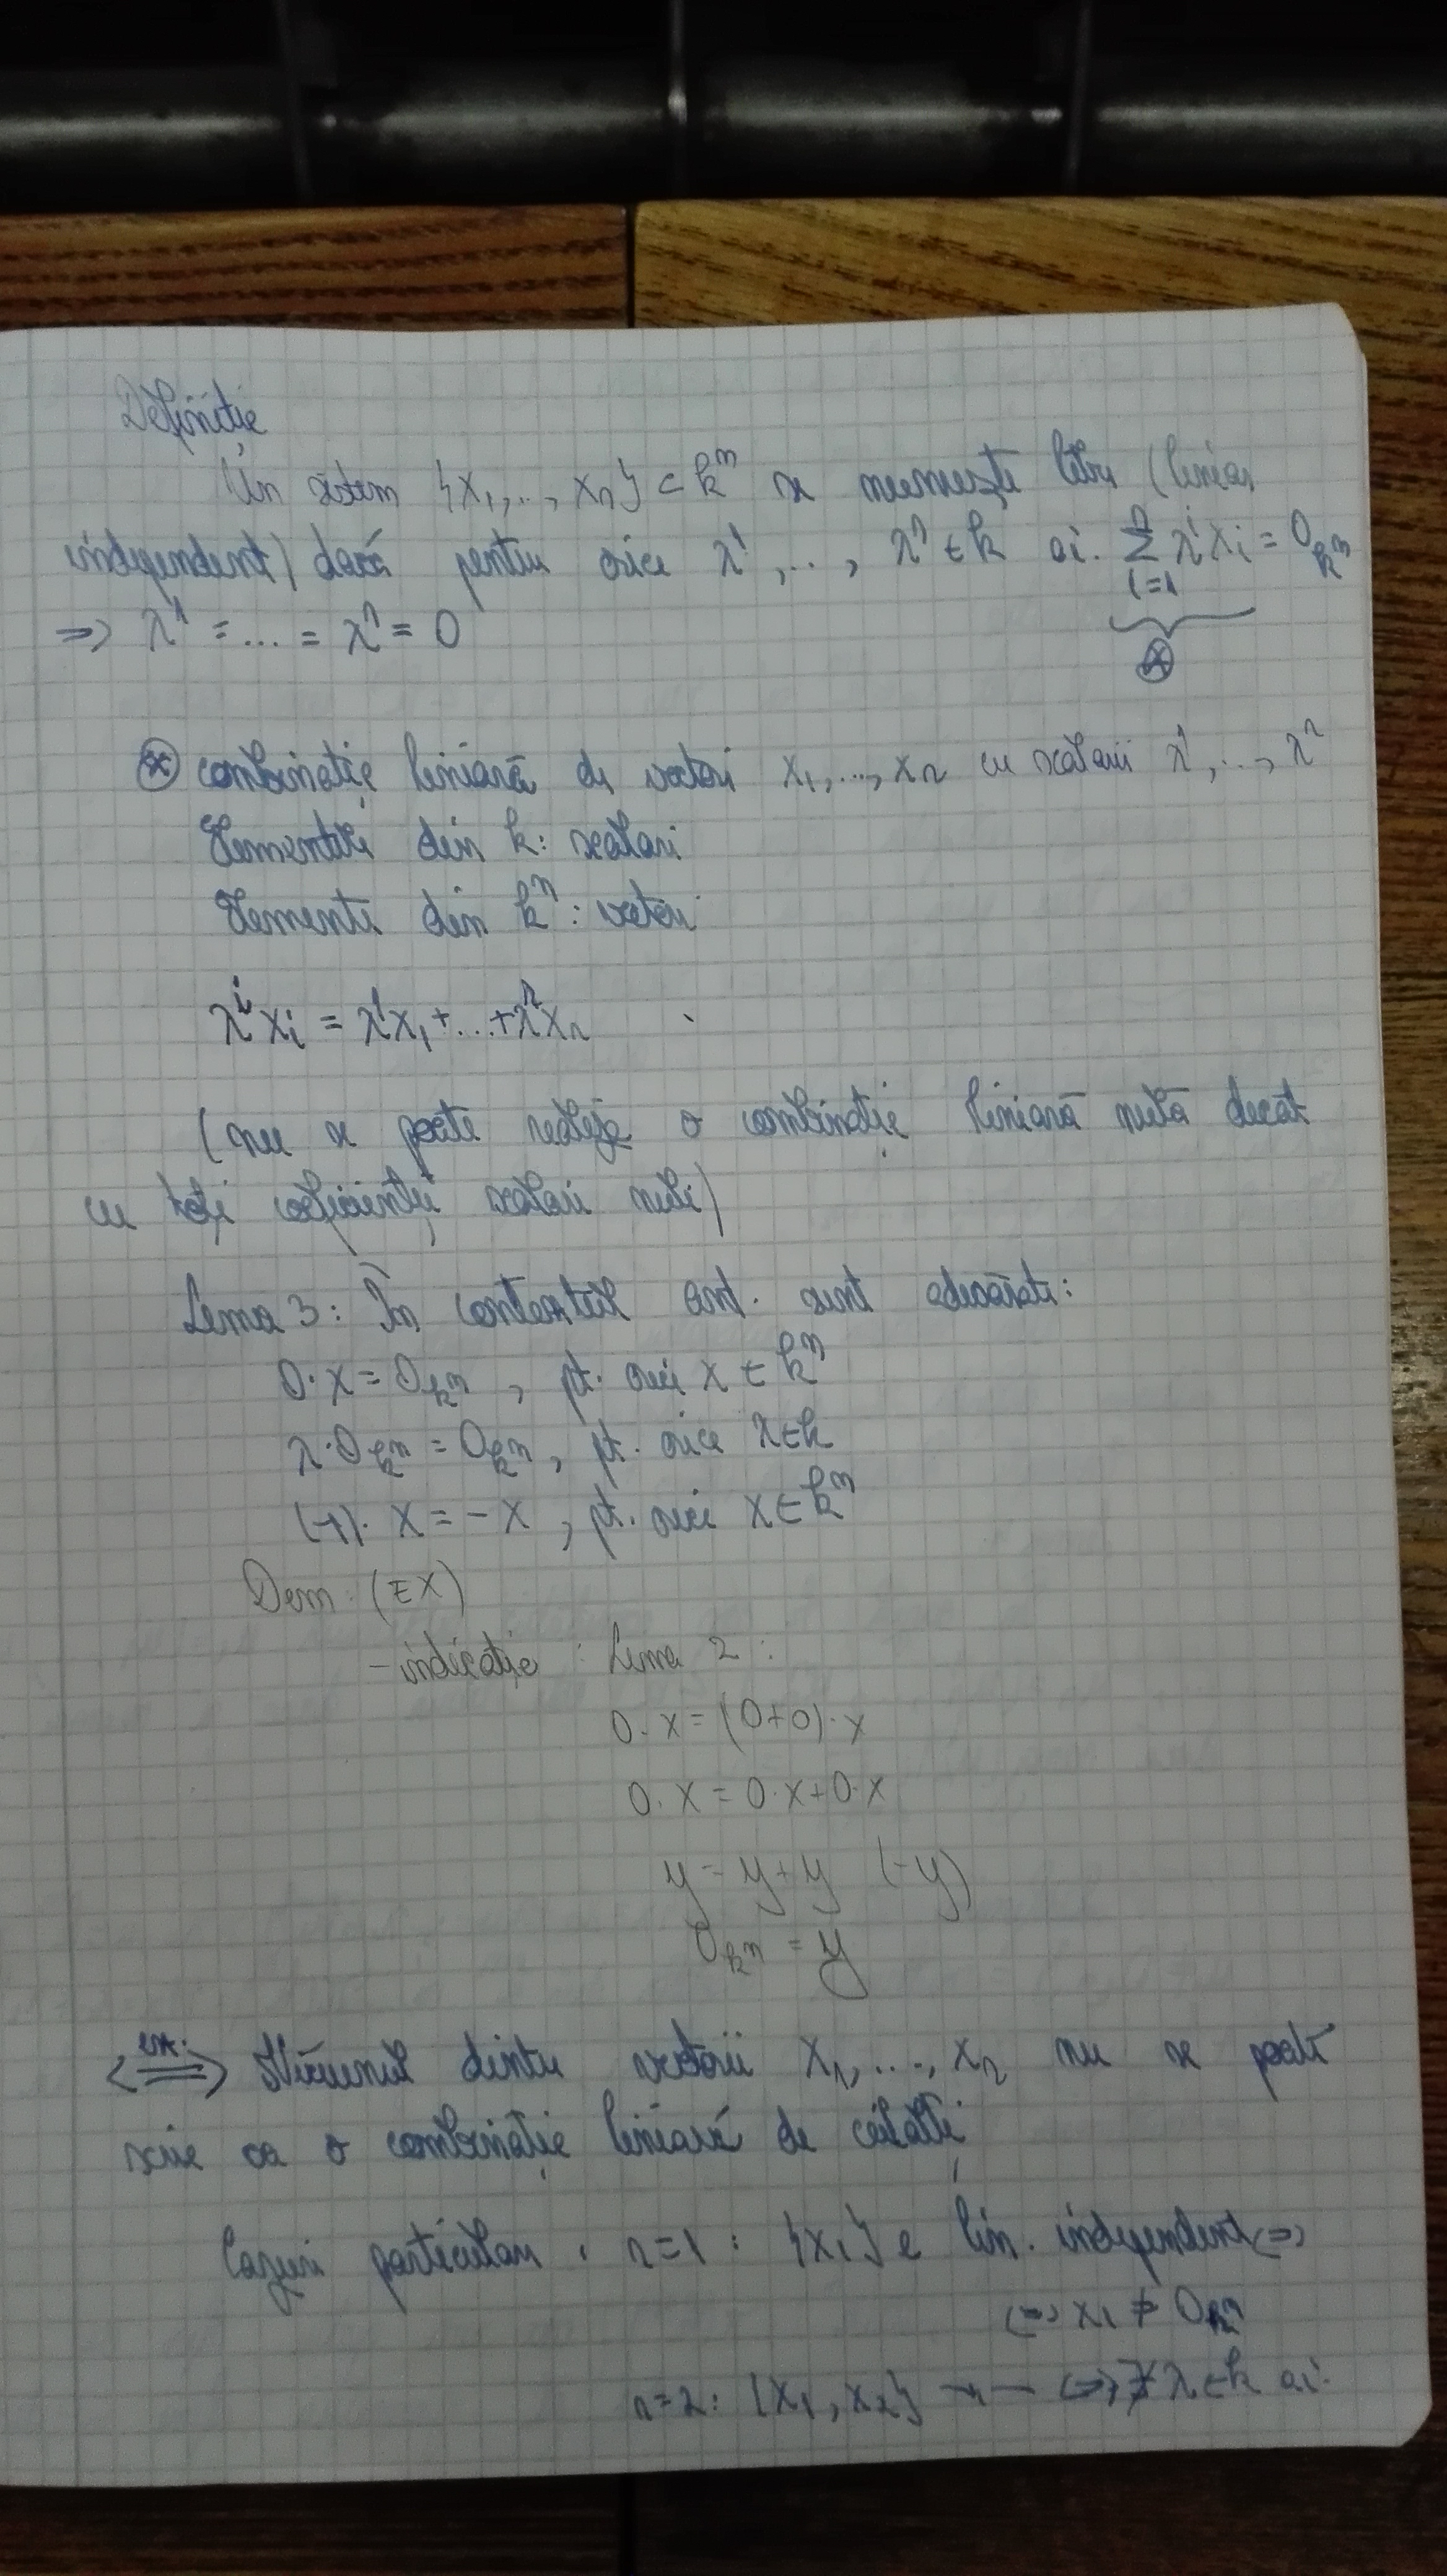 Definiție
Un sistem {x₁,..., xₙ} ⊂ kᵐ se numește liber (liniar
independent) dacă pentru orice λ¹,..., λⁿ ∈ k aî. Σⁿᵢ₌₁ λⁱxᵢ = 0ₖᵐ
=> λ¹ = ... = λⁿ = 0
⊛
⊛ combinație liniară de vectori x₁,...,xₙ cu scalarii λ¹,...,λⁿ
Elementele din k: scalari
Elemente din kᵐ: vectori
λⁱxᵢ = λ¹x₁+...+λⁿxₙ
(nu se poate realiza o combinație liniară nulă decât
cu toți coeficienții scalari nuli)
Lema 3: În contextul ant. sunt adevărate:
0·x = 0ₖᵐ, pt. orice x ∈ kᵐ
λ·0ₖᵐ = 0ₖᵐ, pt. orice λ∈k
(-1)·x = -x, pt. orice x∈kᵐ
Dem: (EX)
-indicație : Lema 2 :
0·x = (0+0)·x
0·x = 0·x+0·x
y = y+y (-y)
0ₖᵐ = y
<=ex.=> Niciunul dintre vectorii x₁,...,xₙ nu se poate
scrie ca o combinație liniară de ceilalți
Cazuri particulare : n=1 : {x₁} e lin. independent <=>
<=> x₁ ≠ 0ₖᵐ
n=2: {x₁, x₂} —"— <=> ∄ λ∈k aî.